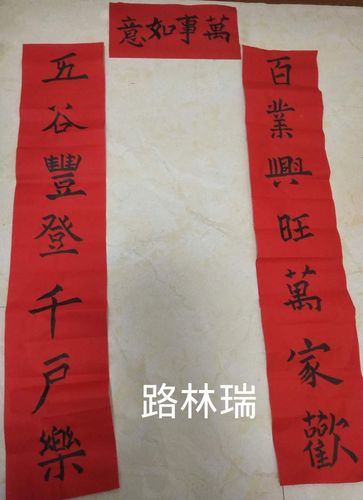 萬事如意
百業興旺萬家歡
五谷豐登千戶樂
路林瑞